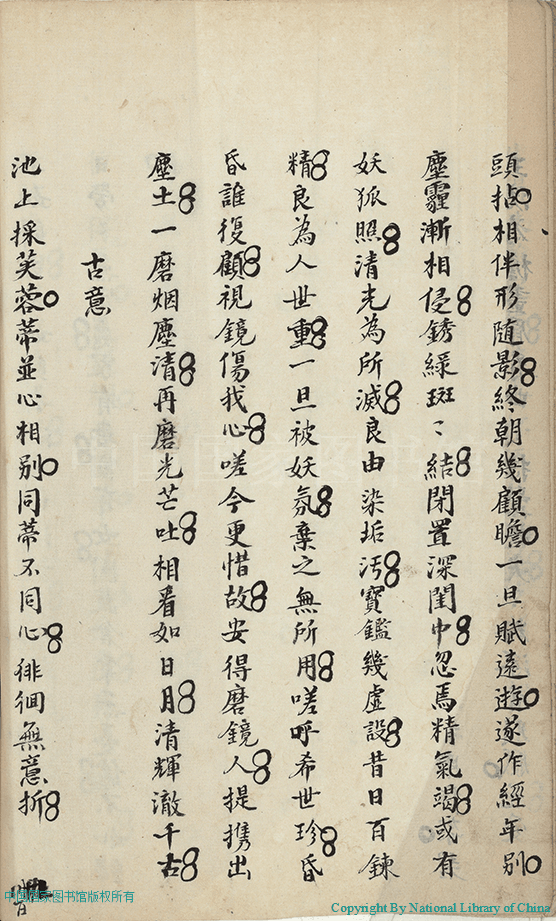 頭拈相伴形随影終朝幾顧瞻一旦賦遠遊遂作經年别
塵霾漸相侵銹綠斑〻結閉置深閨中忽焉精氣竭或有
妖狐照清光為所滅良由染垢汚寳鑑幾虚設昔日百鍊
精良為人世重一旦被妖氛棄之無所用嗟呼希世珍昏
昏誰復顧視鏡傷我心嗟今更惜故安得磨鏡人提携出
塵土一磨烟塵清再磨光芒吐相看如日月清輝澈千古
古意
池上採芙蓉蒂並心相别同蒂不同心徘徊無意折
中国国家图书馆版权所有
Copyright By National Library of China